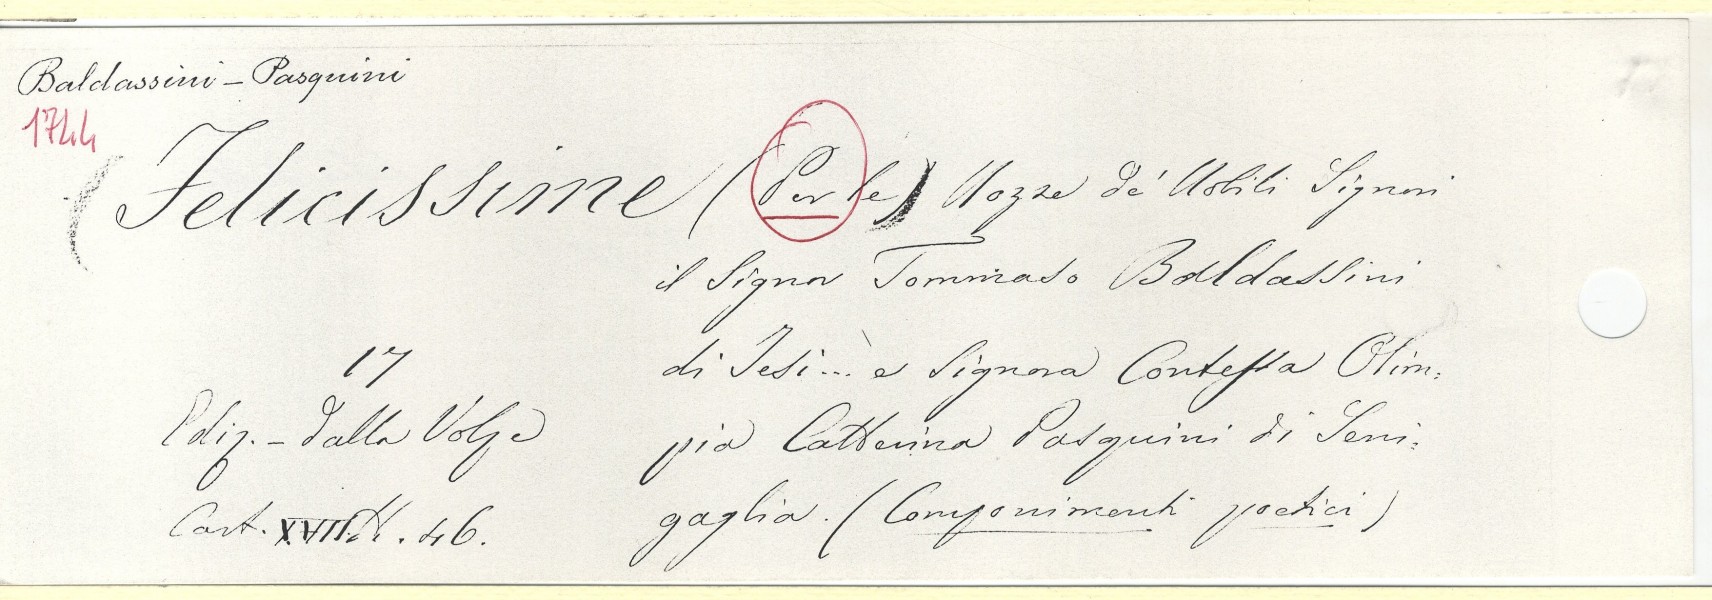 Baldassini - Pasquini
1744
(Felicissime (Per le) Nozze de' Nobili Signori
il Signor Tommaso Baldassini
di Jesi... e Signora Contessa Olim:
pia Catterina Pasquini di Seni:
gaglia. (Componimenti poetici)
17
Ediz. - dalla Volpe
Cart. XVII. 46.